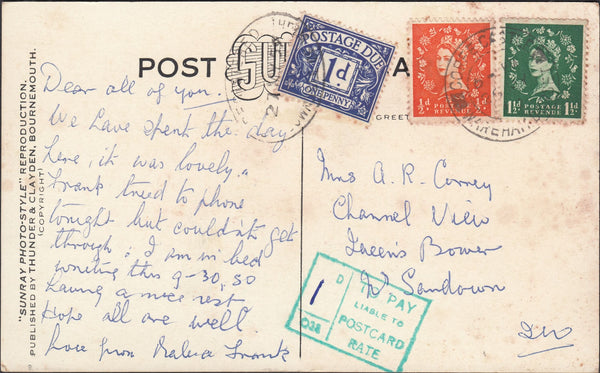 POST
A
SU
GREET
POSTAGE DUE
1d
ONE PENNY
½d ½d
POSTAGE REVENUE
1½d 1½d
POSTAGE REVENUE
WAREHAM
"SUNRAY PHOTO-STYLE" REPRODUCTION.
PUBLISHED BY THUNDER & CLAYDEN, BOURNEMOUTH.
(COPYRIGHT)
Dear all of you.
We have spent the day
here, it was lovely.
Frank tried to phone
tonight but couldn't get
through; I am in bed
writing this 9-30, so
having a nice rest
Hope all are well
love from Frank
Mrs A. R. Corney
Channel View
Queen's Bower
Nr Sandown
I.W.
1 D
TO PAY
LIABLE TO
POSTCARD
RATE
038